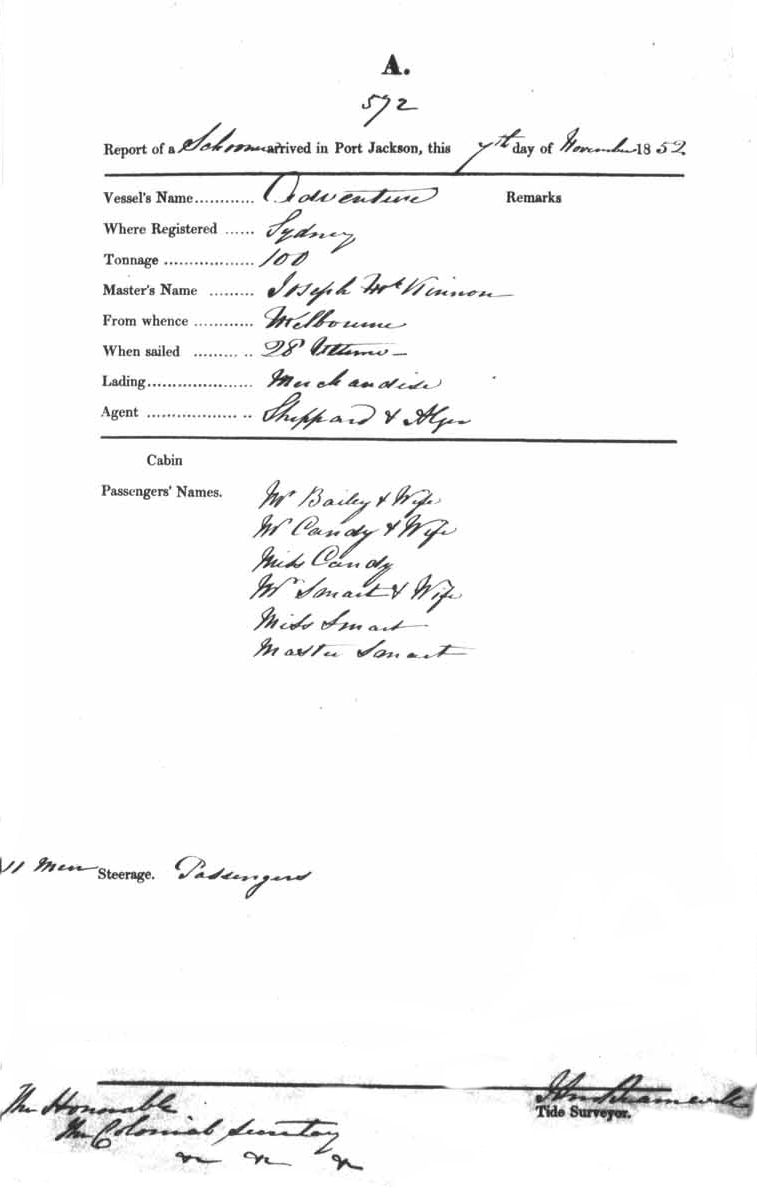 A.
572
Report of a Schooner arrived in Port Jackson, this 7th day of November 1852
Vessel's Name............ Adventure Remarks
Where Registered ...... Sydney
Tonnage .................. 100
Master's Name ......... Joseph McKinnon
From whence ............ Melbourne
When sailed ......... .. 28 Ultimo
Lading..................... Merchandise
Agent .................. .. Sheppard & Alger
Cabin
Passengers' Names.
Mr Bailey & Wife
Mr Candy & Wife
Miss Candy
Mr Smart & Wife
Miss Smart
Master Smart
11 Men Steerage. Passengers
John
Tide Surveyor.
The Honorable
The Colonial Secretary
&c &c &c